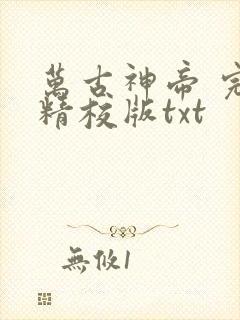 萬古神帝 完
精校版txt
無攸1